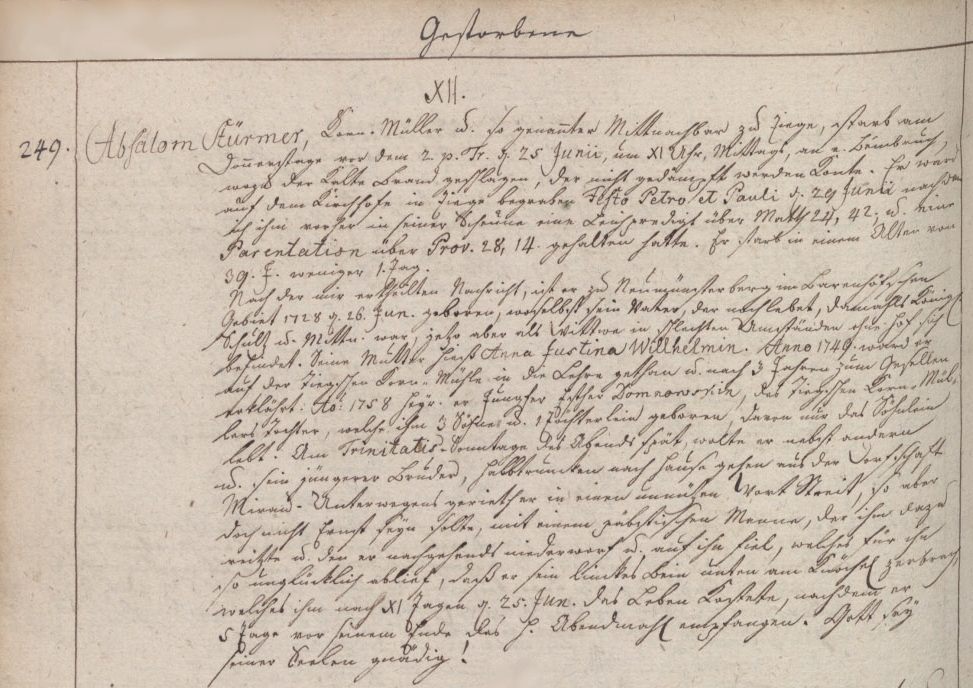 Gestorbene
XII.
249. Absalom Stürmer, Korn-Müller u. so genannter Mittnachbar zu Ziege, starb am
Donnerstage vor dem 2. p. Tr. d. 25 Junii, um XI Uhr, Mittags, an e. Beinbruch,
wozu der kalte Brand geschlagen, der nicht gedämpft werden konte. Er ward
auf dem Kirchhofe in Ziege begraben Festo Petro et Pauli d. 29 Junii nachdem
ich ihm vorher in seiner Scheune eine Leichpredigt über Matth 24, 42. u. eine
Parentation über Prov. 28, 14. gehalten hatte. Er starb in einem Alter von
39. J. weniger 1. Tag.
Nach der mir ertheilten Nachricht, ist er zu Neumünsterberg im Bärenhöfschen
Gebiet 1728 d. 26. Jun. geboren, woselbst sein Vater, der noch lebet, damahls
Schultz u. Mittn. war, jetzo aber als Wittwer in schlechten Umständen ohne Hof sich
befindet. Seine Mutter hiess Anna Justina Willhelmin. Anno 1749. ward er
auf der Ziegschen Korn-Mühle in die Lehre gethan u. nach 3 Jahren zum Gesellen
erklährt. Ao: 1758 heyr. er Jungfer Esther Domnowskin, des Ziegschen Korn-Mül-
lers Tochter, welche ihm 3 Söhne u. 1 Töchterlein geboren, davon nur das Söhnlein
lebt. Am Trinitatis-Sonntage des Abends spät, wolte er nebst andern
u. sein jüngerer Bruder, halbtruncken nach Hause gehen aus der Dorfschaft
Mirau. Unterwegens gerieth er in einen unnützen Wort Streit, so aber
doch nicht Ernst seyn solte, mit einem päbstischen Manne, der ihn dazu
reitzte u. den er nachgehends niederworf u. auf ihn fiel, welches für ihn
so unglücklich ablief, daß er sein linckes Bein unten am Knöchel zerbrach,
welches ihm nach XI Tagen d. 25. Jun. das Leben kostete, nachdem er
5 Tage vor seinem Ende das H. Abendmahl empfangen. Gott sey
seiner Seelen gnädig!